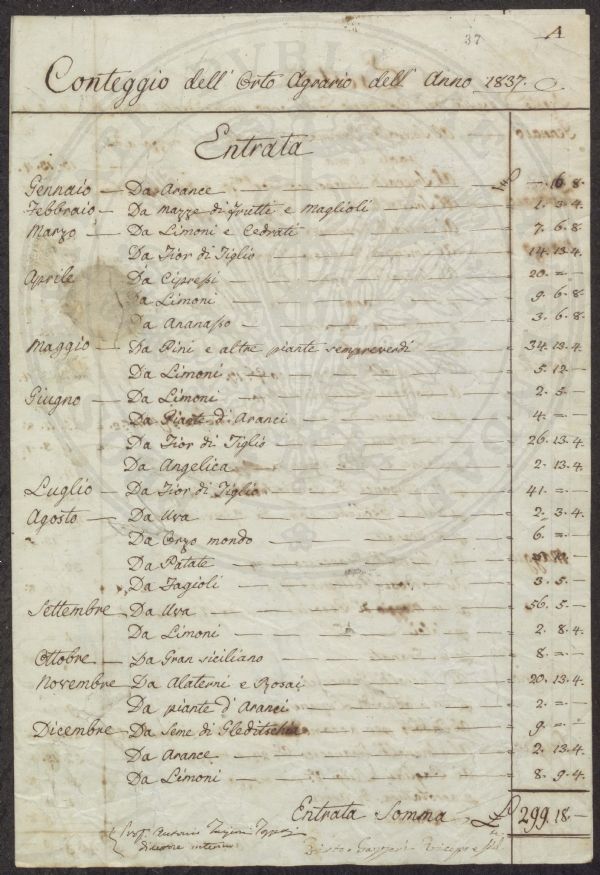 37
A
Conteggio dell' Orto Agrario dell' Anno 1837.
Entrata
Gennaio — Da Arance — £ —. 6. 8.
Febbraio — Da mazze di frutti e Maglioli — 1. 3. 4.
Marzo — Da Limoni e Cedrati — 7. 6. 8.
Da Fior di Tiglio — 14. 13. 4.
Aprile Da Cipressi — 20. = —
Da Limoni — 9. 6. 8.
Da Ananasso — 3. 6. 8.
Maggio — Da Pini e altre piante sempreverdi — 34. 13. 4.
Da Limoni — 5. 12 —
Giugno — Da Limoni — 2. 5. —
Da Piante d'Aranci — 4. = —
Da Fior di Tiglio — 26. 13. 4.
Da Angelica — 2. 13. 4.
Luglio — Da Fior di Tiglio — 41. = —
Agosto — Da Uva — 2. 3. 4.
Da Orzo mondo — 6. = —
Da Patate —
Da Fagioli — 3. 5. —
Settembre Da Uva — 56. 5. —
Da Limoni — 2. 8. 4.
Ottobre — Da Gran siciliano — 8. = —
Novembre — Da Alaterni e Rosai — 20. 13. 4.
Da piante d'Aranci — 2. = —
Dicembre — Da Seme di Gleditschia — 9. = —
Da Arance — 2. 13. 4.
Da Limoni — 8. 9. 4.
Entrata Somma £ 299. 18 —
Prof. Antonio Targioni Tozzetti
direttore interino